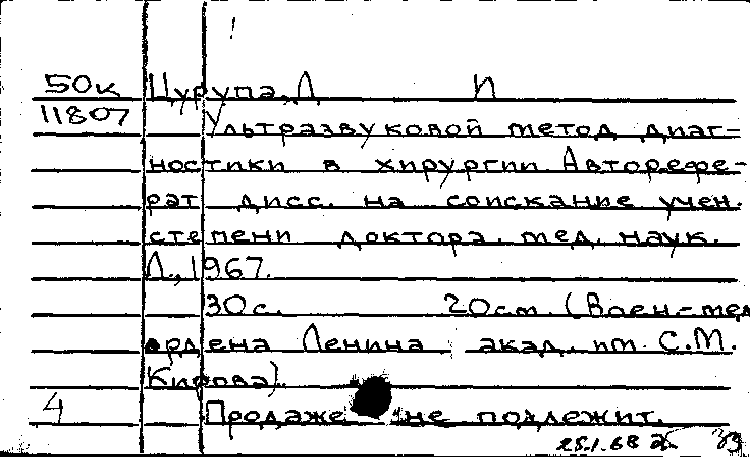 50к Цурупа, Л И
11807 Ультразвуковой метод диаг-
ностики в хирургии Авторефе-
рат дисс. на соискание учен.
степени доктора. мед. наук.
Л., 1967.
30с. 20см. (Воен-мед
ордена Ленина акад. им. С.М.
Кирова).
4 Продаже не подлежит.
25.1.68